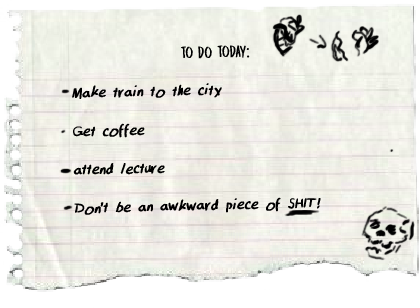 TO DO TODAY:
- Make train to the city
- Get coffee
- attend lecture
- Don't be an awkward piece of SHIT!